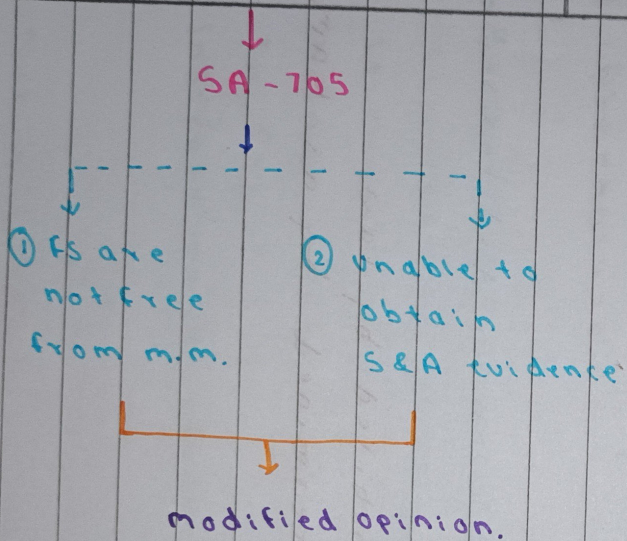 SA-705
① FS are
not free
from m.m.
② unable to
obtain
S&A evidence
modified opinion.